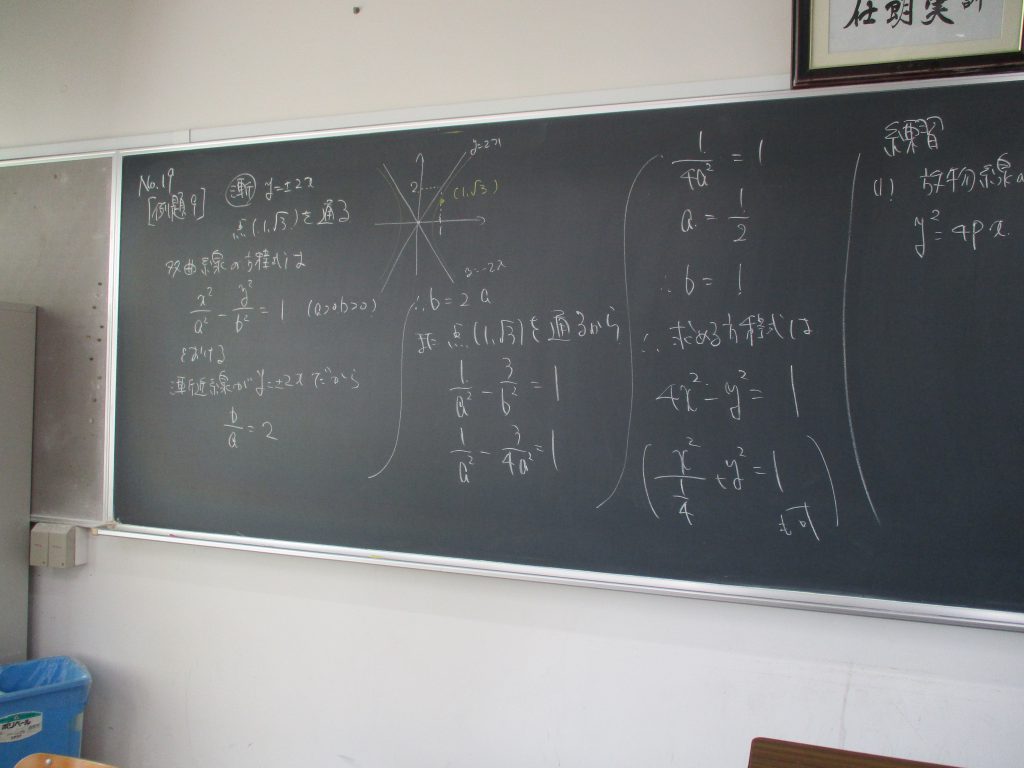 No.19
[例題9] 漸 y=±2x
点(1,√3)を通る
双曲線の方程式は
x²/a² - y²/b² = 1 (a>0 b>0)
とおける
漸近線がy=±2xだから
b/a = 2
y=2x
2
(1,√3)
1
y=-2x
∴b=2a
点(1,√3)を通るから
1/a² - 3/b² = 1
1/a² - 3/4a² = 1
1/4a² = 1
a = 1/2
∴ b = 1
∴ 求める方程式は
4x² - y² = 1
(x²/(1/4) + y² = 1
も可)
練習
(1) 放物線
y² = 4px
ポリペール